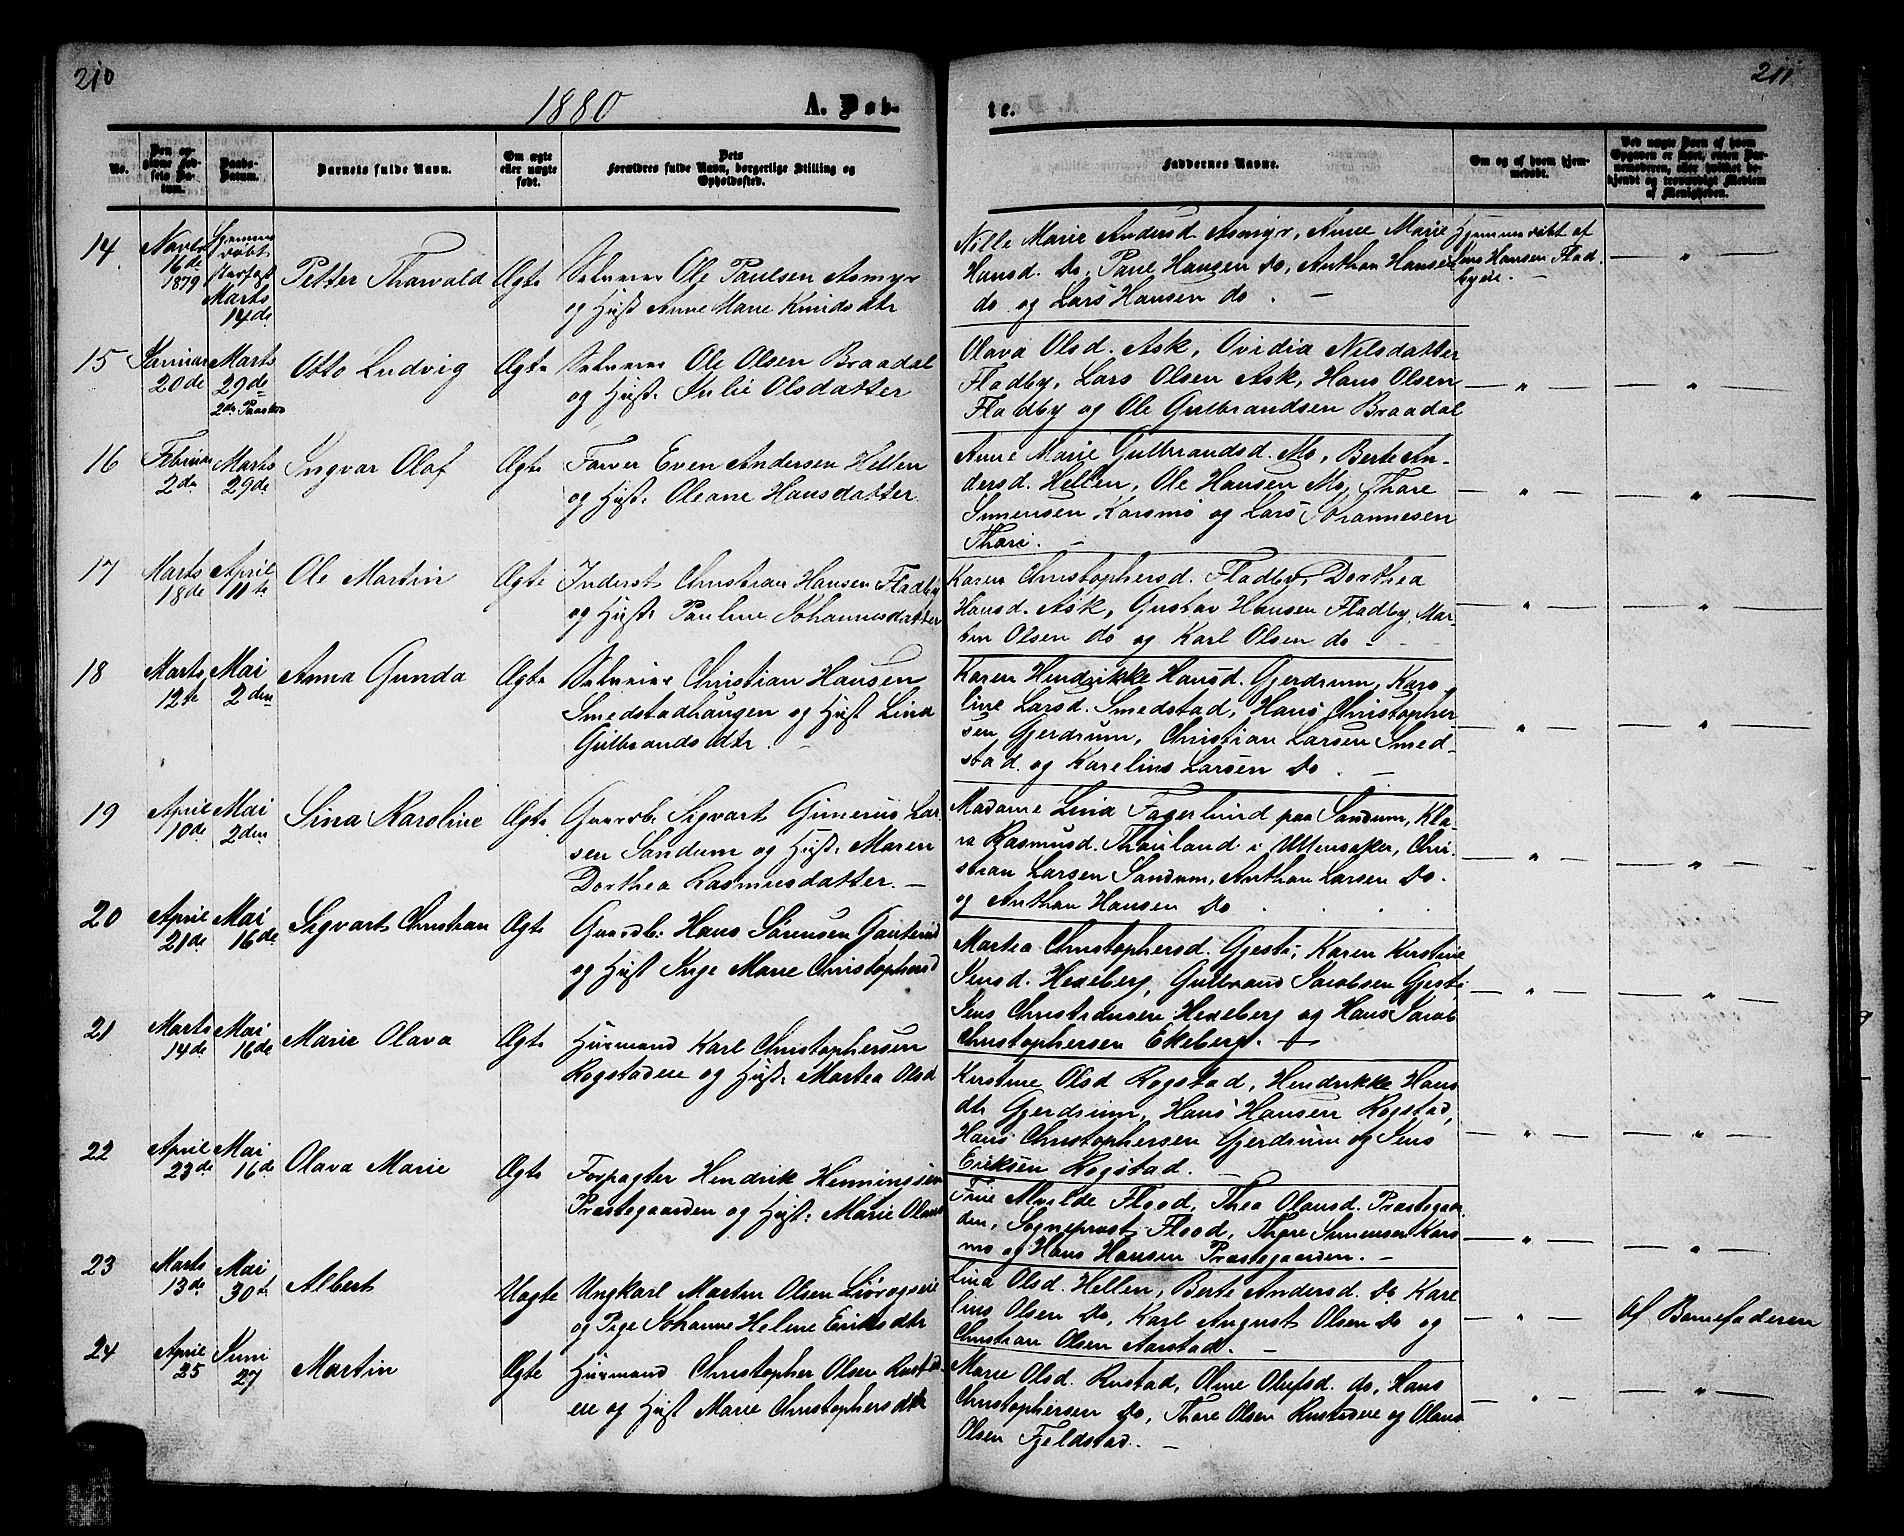 210
211
1880
A. Døb-
te.
No.
Den opgivne Fødsels Datum.
Daabs-Datum.
Barnets fulde Navn.
Om ægte eller uægte født.
Dets Forældres fulde Navn, borgerlige Stilling og Opholdssted.
Faddernes Navne.
Om og af hvem hjemmedøbt.
14
Novbr 16de 1879
Marts 14de
Petter Tharvald
Ægte
Selveier Ole Paulsen Asmyr
og Hust Anne Marie Knudsdtr
Nille Marie Andersd Asmyr, Anne Marie
Hansd. Do, Paul Hansen Do, Anthan Hansen
do og Lars Hansen do. —
Hjemmedøbt af
Lars Hansen Flad-
byeie. —
— " —
15
Januar 20de
Marts 29de 2den Paaskd
Otto Ludvig
Ægte
Selveier Ole Olsen Braadal
og Hust. Julie Olsdatter
Olava Olsd. Ask, Ovidia Nilsdatter
Fladby, Lars Olsen Ask, Hans Olsen
Fladby og Ole Gulbrandsen Braadal
— " —
— " —
16
Februar 2den
Marts 29de
Ingvar Olaf
Ægte
Farver Even Andersen Hellen
og Hust. Oleane Hansdatter
Anne Marie Gulbrandsd. Mo, Berte An-
dersd. Hellen, Ole Hansen Mo, Thore
Simensen Karsmo og Lars Johannesen
Thori. —
— " —
— " —
17
Marts 18de
April 11te
Ole Martin
Ægte
Inderst Christian Hansen Fladby
og Hust. Pauline Johannesdatter
Karen Christophersd. Fladby, Dorthea
Hansd. Ask, Gustav Hansen Fladby, Mar-
tin Olsen do og Karl Olsen do. —
— " —
— " —
18
Marts 12te
Mai 2den
Anna Gunda
Ægte
Selveier Christian Hansen
Smedstadhaugen og Hust Lina
Gulbrandsdtr. —
Karen Hendrikke Hansd. Gjerdrum, Karo-
line Larsd. Smedstad, Hans Christopher
sen Gjerdrum, Christian Larsen Smed-
stad og Karelius Larsen Do. —
— " —
— " —
19
April 10de
Mai 2den
Sina Karoline
Ægte
Gaardb. Sigvart Gunerius Lar
sen Sandum og Hust. Maren
Dorthea Rasmusdatter. —
Madame Lina Fagerlund paa Sandum, Kla-
ra Rasmusd. Thauland i Ullensaker, Chri-
stian Larsen Sandum, Anthan Larsen Do.
og Anthan Hansen Do
— " —
— " —
20
April 21de
Mai 16de
Sigvart Christian
Ægte
Gaardb. Hans Sørensen
og Hust Inge Marie Christophersd
Martea Christophersd. Gjesti, Karen Kirstine
Jensd. Hexeberg, Gulbrand Jacobsen Gjesti
Jens Christiansen Hexeberg og Hans Jacob
Christophersen Ekeberg. —
— " —
— " —
21
Marts 14de
Mai 16de
Marie Olava
Ægte
Huusmand Karl Christophersen
Rogstadeie og Hust. Martea Olsd
Kirstine Olsd Rogstad, Hendrikke Hans
dtr Gjerdrum, Hans Hansen Rogstad,
Hans Christophersen Gjerdrum og Jens
Eriksen Rogstad. —
— " —
— " —
22
April 23de
Mai 16de
Olava Marie
Ægte
Forpagter Hendrik Henningsen
Præstegaarden og Hust: Marie Olausd
Frue Alvilde Flood, Thea Olausd. Præstegaar
den, Sognepræst Flood, Thore Simensen Kars
mo og Hans Hansen Præstegaarden. —
— " —
— " —
23
Marts 13de
Mai 30te
Albert
Uægte
Ungkarl Martin Olsen
og Pige Johanne Helene Eriksdtr
Lina Olsd. Hellen, Berte Andersd. Do Kare
lius Olsen Do, Karl August Olsen Do og
Christian Olsen Aarstad. —
— " —
af Barnefaderen
24
April 25
Juni 27
Martin
Ægte
Huusmand Christopher Olsen Rustad-
eie og Hust Marie Christophersdtr
Marie Olsd. Rustad, Oline Olufsd. do, Hans
Christophersen Do, Thore Olsen Rustadeie og Olaus
Olsen Fjeldstad. —
— " —
— " —